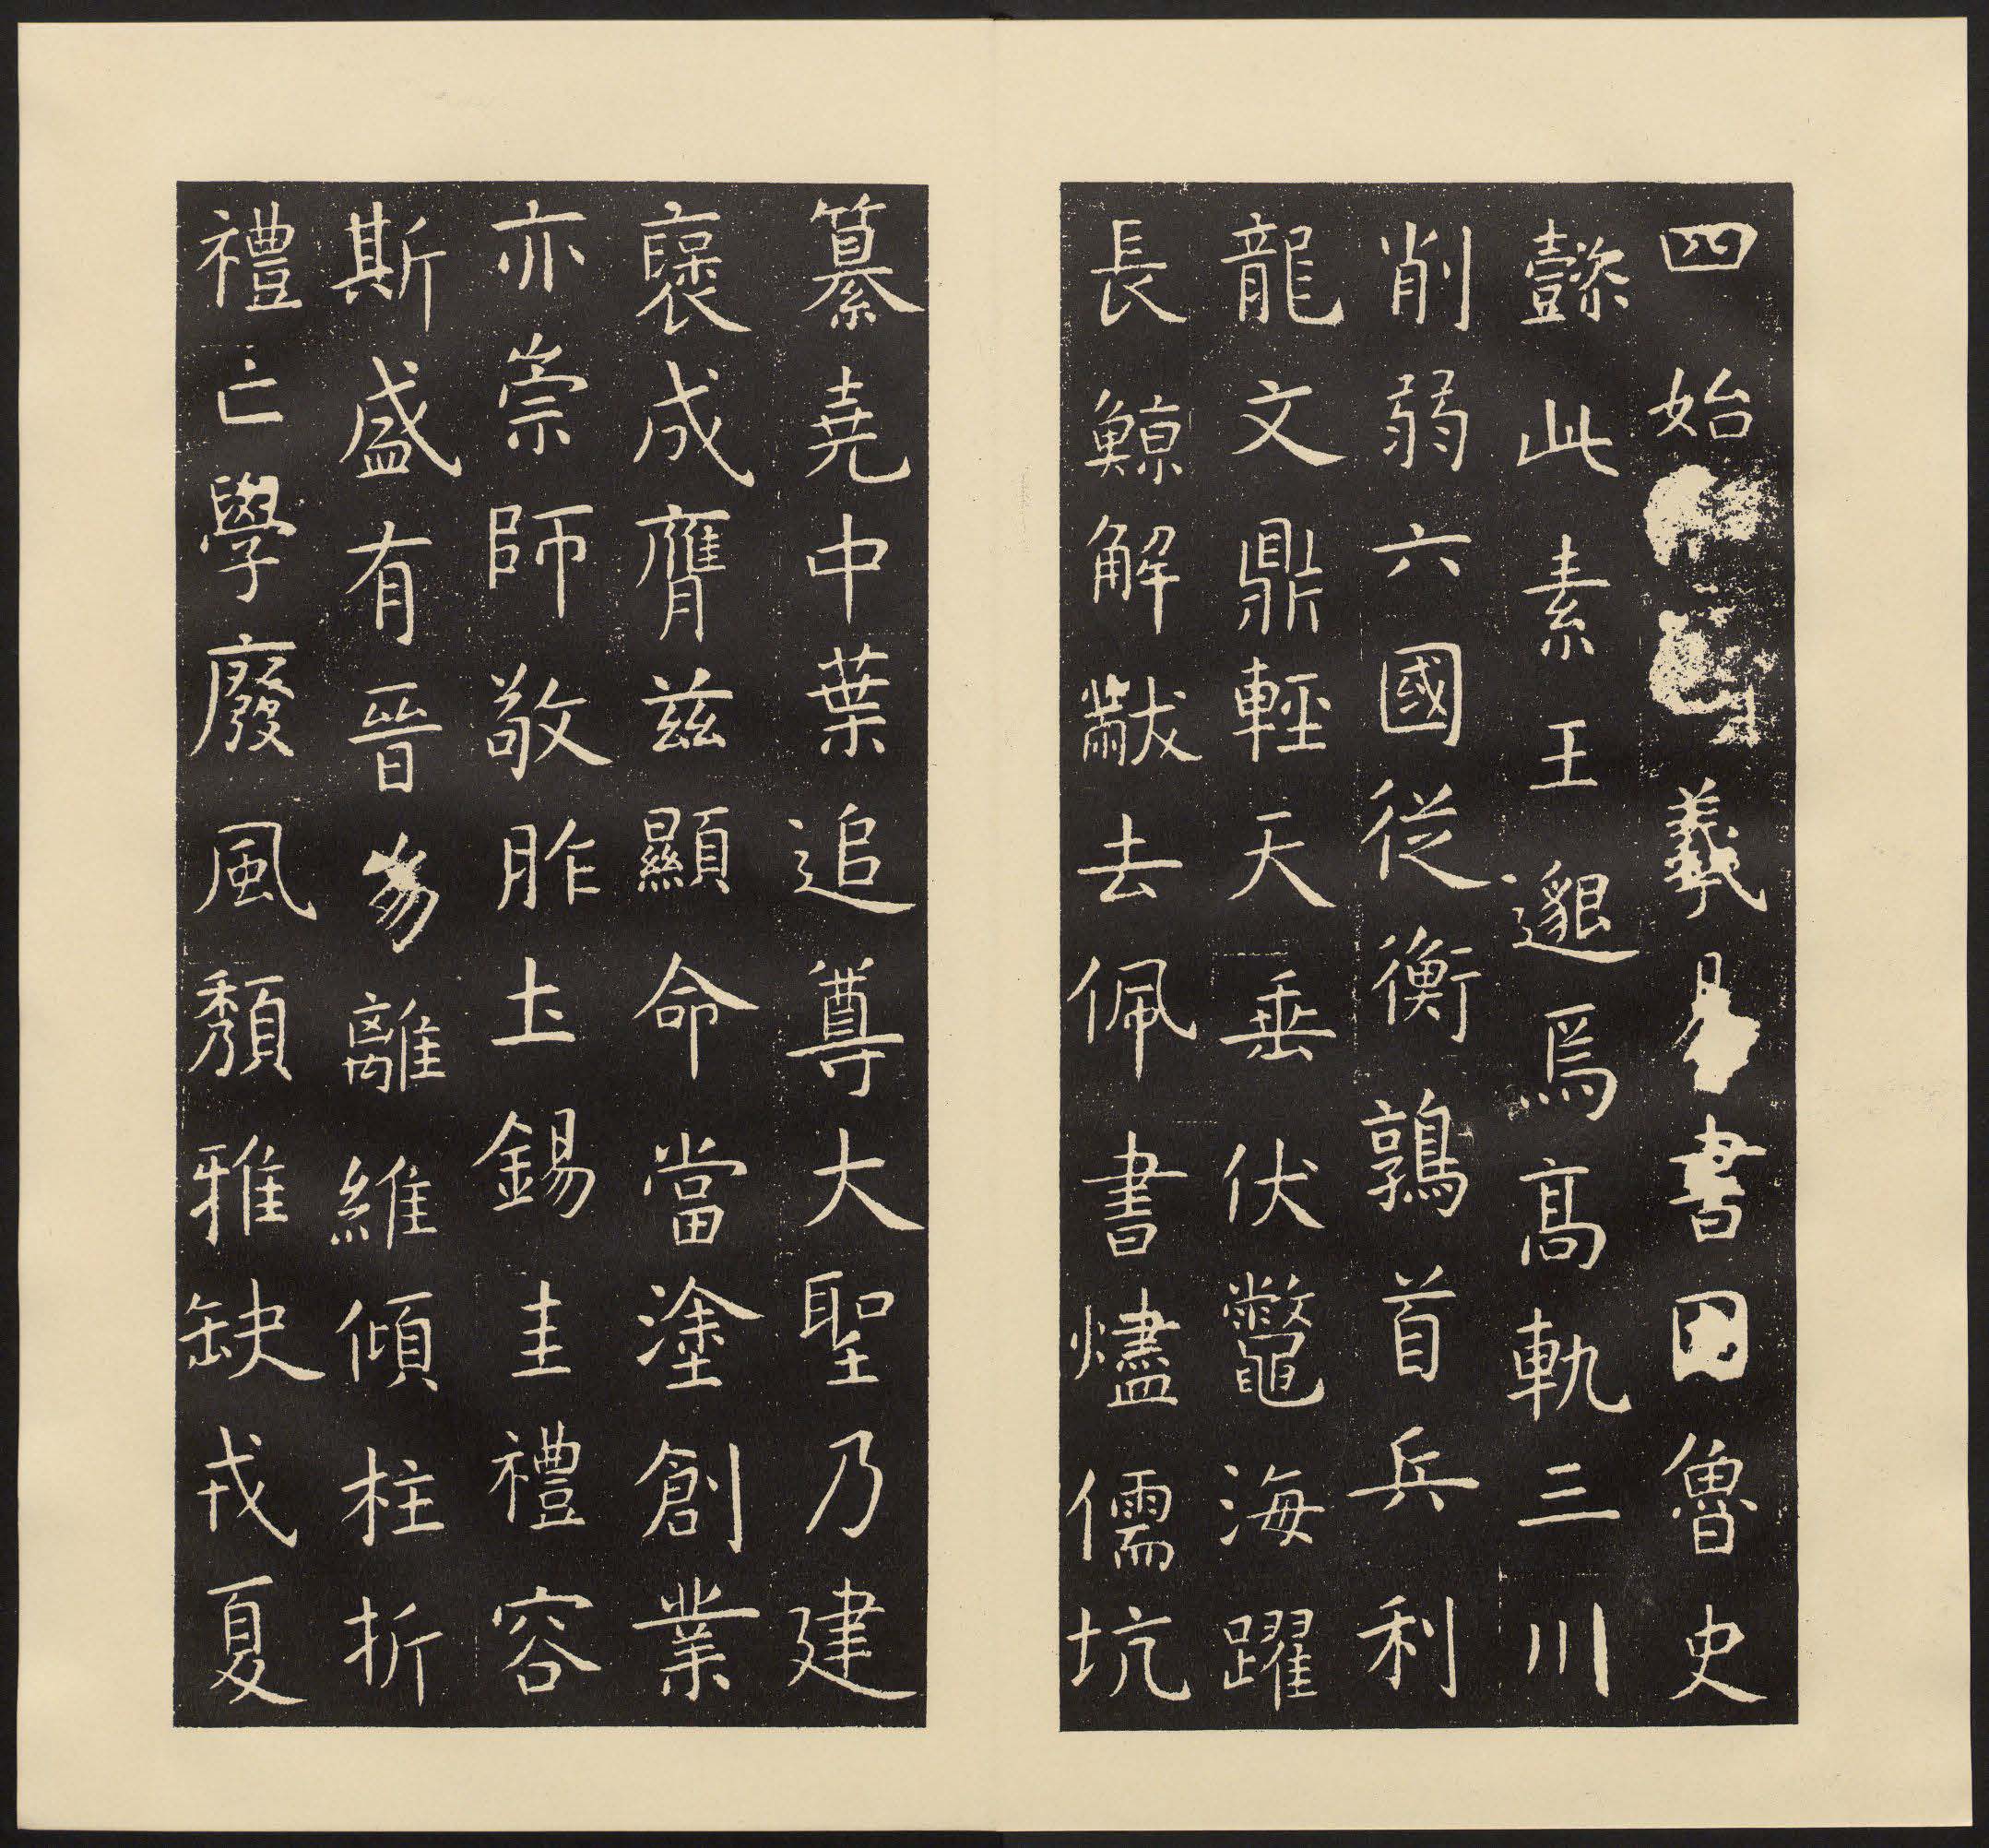 四始羲易書因魯史
懿此素王邈焉高軌三川
削弱六國從衡鶉首兵利
龍文鼎輕天垂伏鼈海躍
長鯨解黻去佩書燼儒坑
纂堯中葉追尊大聖乃建
褒成膺茲顯命當塗創業
亦崇師敬胙土錫圭禮容
斯盛有晉易離維傾柱折
禮亡學廢風頹雅缺戎夏